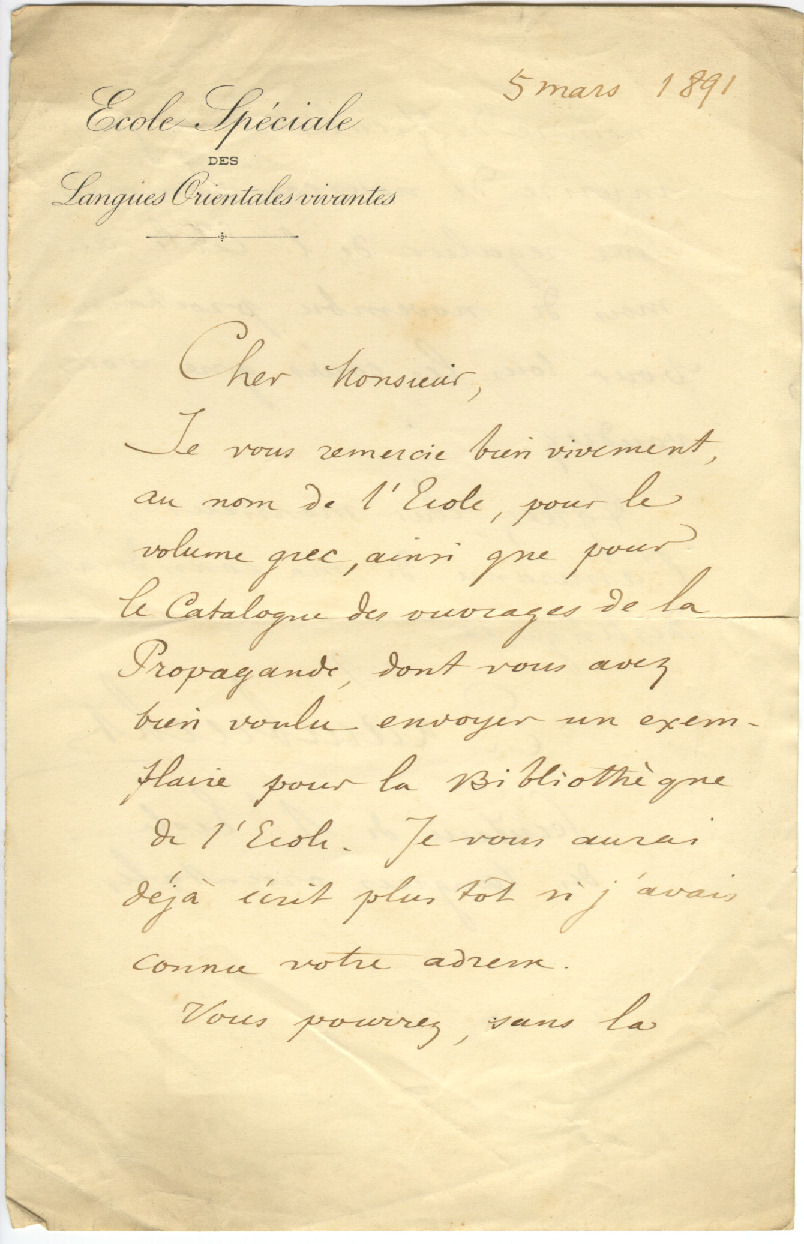 5 mars 1891
Ecole Spéciale
DES
Langues Orientales vivantes
Cher Monsieur,
Je vous remercie bien vivement,
au nom de l'Ecole, pour le
volume grec, ainsi que pour
le Catalogue des ouvrages de la
Propagande, dont vous avez
bien voulu envoyer un exem-
plaire pour la Bibliothèque
de l'Ecole. Je vous aurais
déjà écrit plus tôt si j'avais
connu votre adresse.
Vous pourrez, sans la